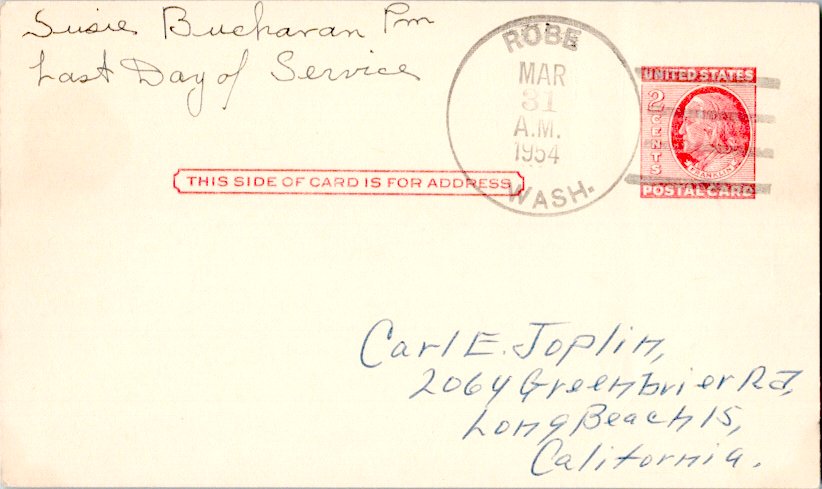 Susie Buchanan Pm
Last Day of Service
ROBE
MAR
31
A.M.
1954
WASH.
UNITED STATES
2 CENTS
FRANKLIN
POSTAL CARD
THIS SIDE OF CARD IS FOR ADDRESS
Carl E. Joplin,
2064 Greenbrier Rd,
Long Beach 15,
California.